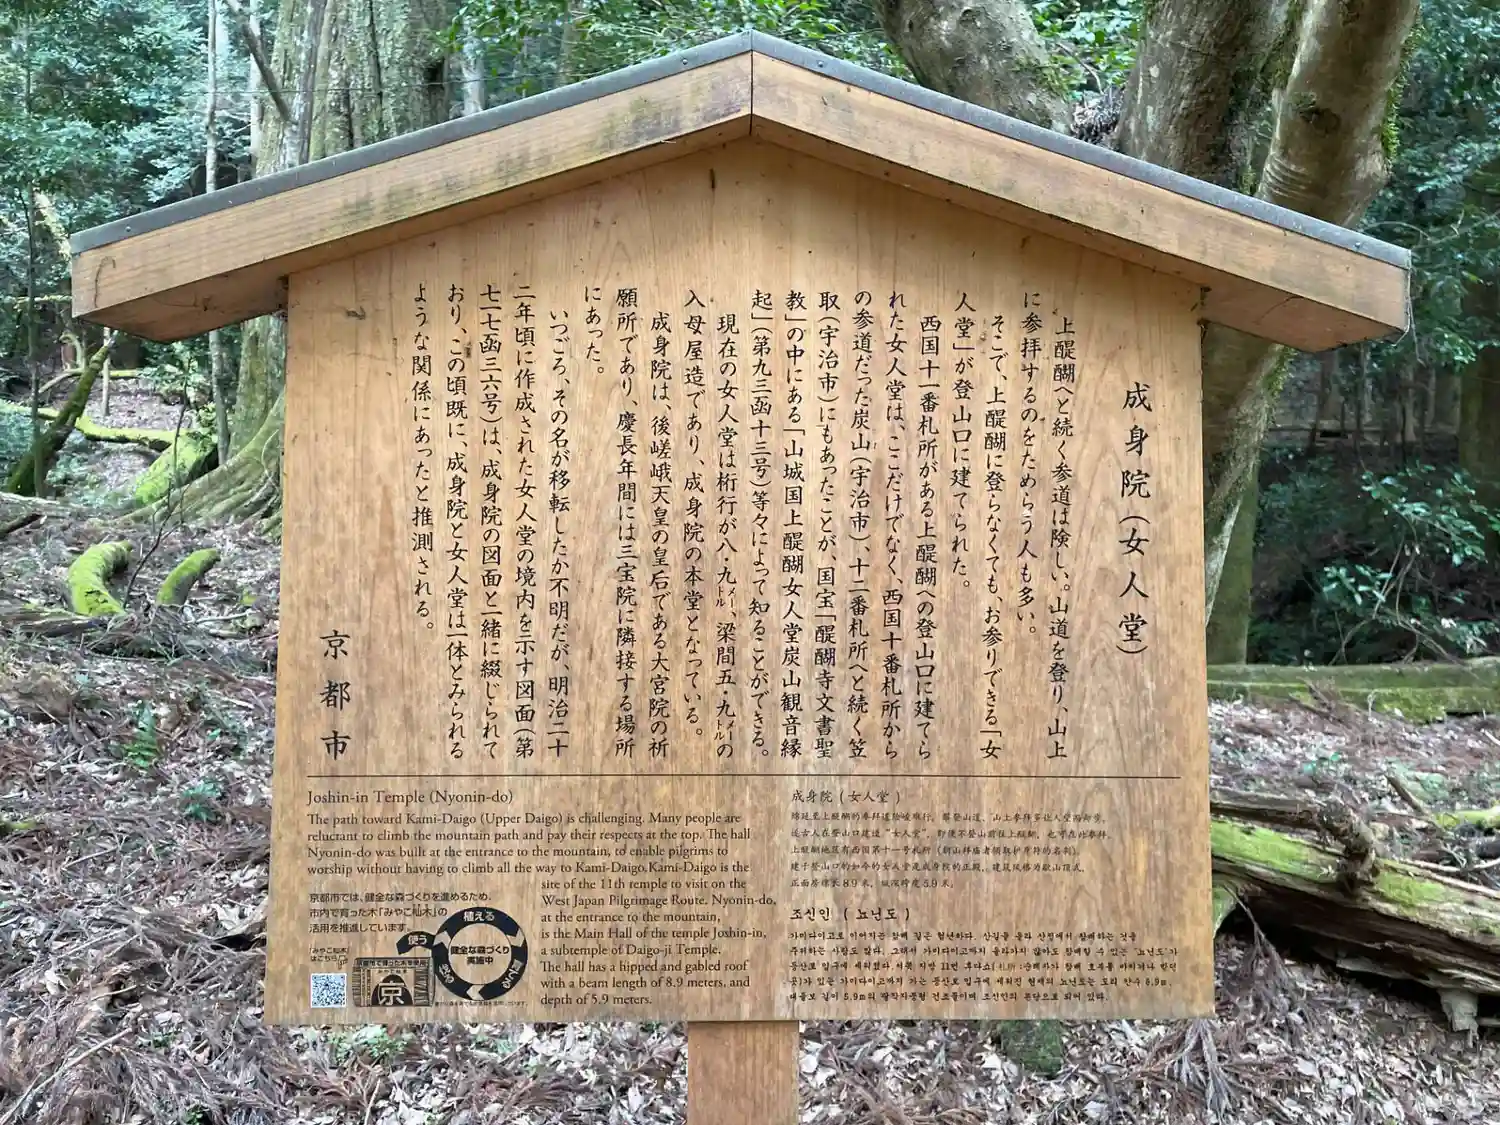 成身院（女人堂）
上醍醐へと続く参道は険しい。山道を登り、山上
に参拝するのをためらう人も多い。
そこで、上醍醐に登らなくても、お参りできる「女
人堂」が登山口に建てられた。
西国十一番札所がある上醍醐への登山口に建てら
れた女人堂は、ここだけでなく、西国十番札所から
の参道だった炭山（宇治市）、十二番札所へと続く笠
取（宇治市）にもあったことが、国宝「醍醐寺文書聖
教」の中にある「山城国上醍醐女人堂炭山観音縁
起」（第九三函十三号）等々によって知ることができる。
現在の女人堂は桁行が八・九メートル、梁間五・九メートルの
入母屋造であり、成身院の本堂となっている。
成身院は、後嵯峨天皇の皇后である大宮院の祈
願所であり、慶長年間には三宝院に隣接する場所
にあった。
いつごろ、その名が移転したか不明だが、明治二十
二年頃に作成された女人堂の境内を示す図面（第
七一七函三六号）は、成身院の図面と一緒に綴じられて
おり、この頃既に、成身院と女人堂は一体とみられる
ような関係にあったと推測される。
京都市
Joshin-in Temple (Nyonin-do)
The path toward Kami-Daigo (Upper Daigo) is challenging. Many people are
reluctant to climb the mountain path and pay their respects at the top. The hall
Nyonin-do was built at the entrance to the mountain, to enable pilgrims to
worship without having to climb all the way to Kami-Daigo.Kami-Daigo is the
site of the 11th temple to visit on the
West Japan Pilgrimage Route. Nyonin-do,
at the entrance to the mountain,
is the Main Hall of the temple Joshin-in,
a subtemple of Daigo-ji Temple.
The hall has a hipped and gabled roof
with a beam length of 8.9 meters, and
depth of 5.9 meters.
京都市では、健全な森づくりを進めるため、
市内で育った木「みやこ杣木」の
活用を推進しています。
「みやこ杣木」
はこちら
植える
使う
健全な森づくり
実施中
京
成身院（女人堂）
绵延至上醍醐的参拜道险峻难行，攀登山道、山上参拜多让人望而却步。
故古人在登山口建造“女人堂”，即使不登山前往上醍醐，也可在此参拜。
上醍醐地区有西国第十一号札所（朝山拜庙者领取护身符的名刹），
建于登山口的如今的女人堂是成身院的正殿，建筑风格为歇山顶式，
正面房檩长8.9 米，纵深跨度5.9米。
조신인 （ 뇨닌도 ）
가미다이고로 이어지는 참배 길은 험난하다. 산길을 올라 산정에서 참배하는 것을
주저하는 사람도 많다. 그래서 가미다이고까지 올라가지 않아도 참배할 수 있는 '뇨닌도'가